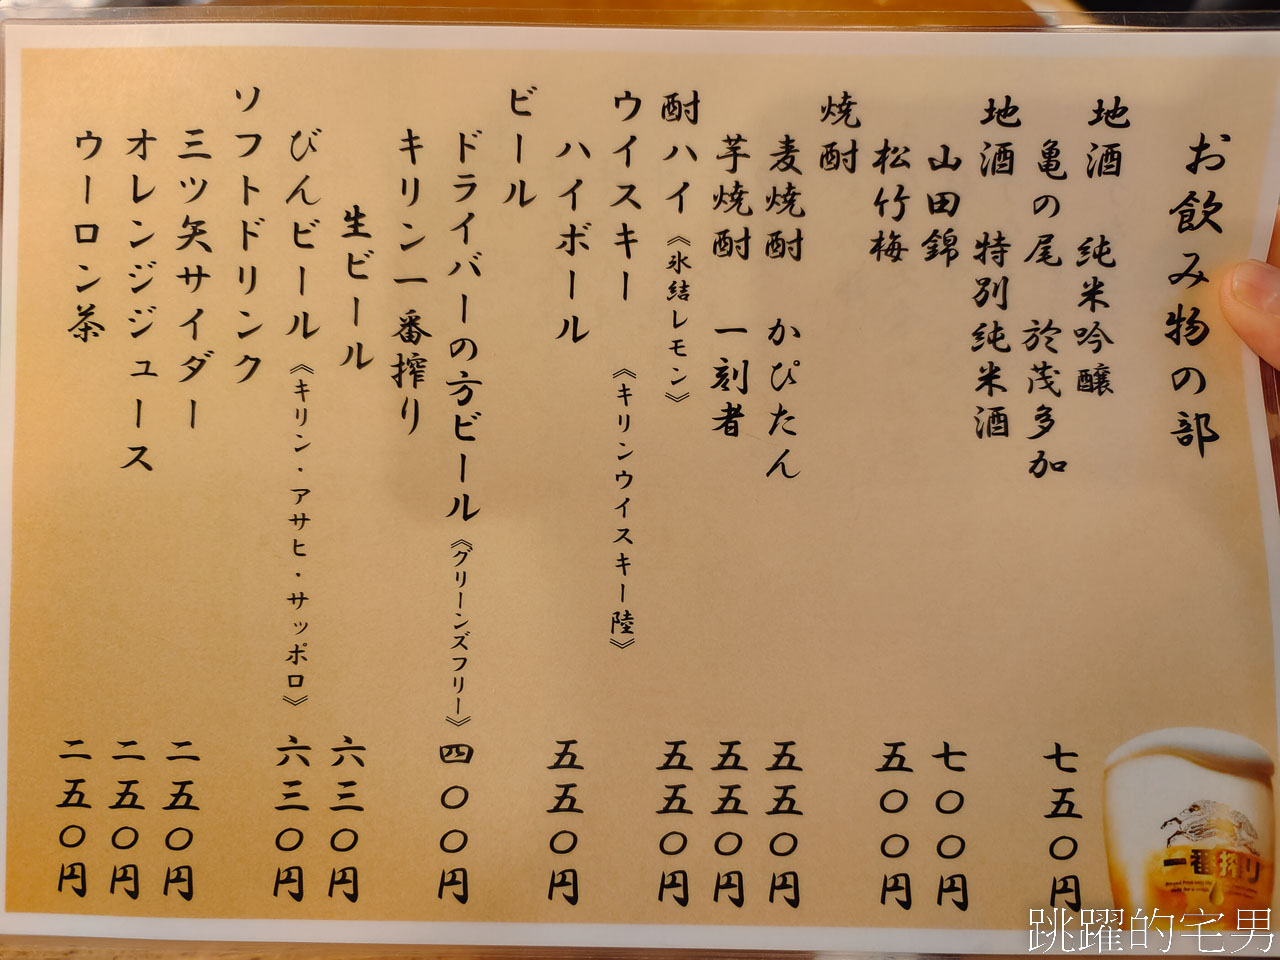 お飲み物の部
地酒 純米吟醸
亀の尾 於茂多加 七五〇円
地酒 特別純米酒
山田錦 七〇〇円
松竹梅 五〇〇円
焼酎
麦焼酎 かぴたん 五五〇円
芋焼酎 一刻者 五五〇円
酎ハイ《氷結レモン》 五五〇円
ウイスキー 《キリンウイスキー陸》
ハイボール 五五〇円
ビール
ドライバーの方ビール《グリーンズフリー》 四〇〇円
キリン一番搾り
生ビール 六三〇円
びんビール《キリン・アサヒ・サッポロ》 六三〇円
ソフトドリンク
三ツ矢サイダー 二五〇円
オレンジジュース 二五〇円
ウーロン茶 二五〇円
一番搾り
跳躍的宅男